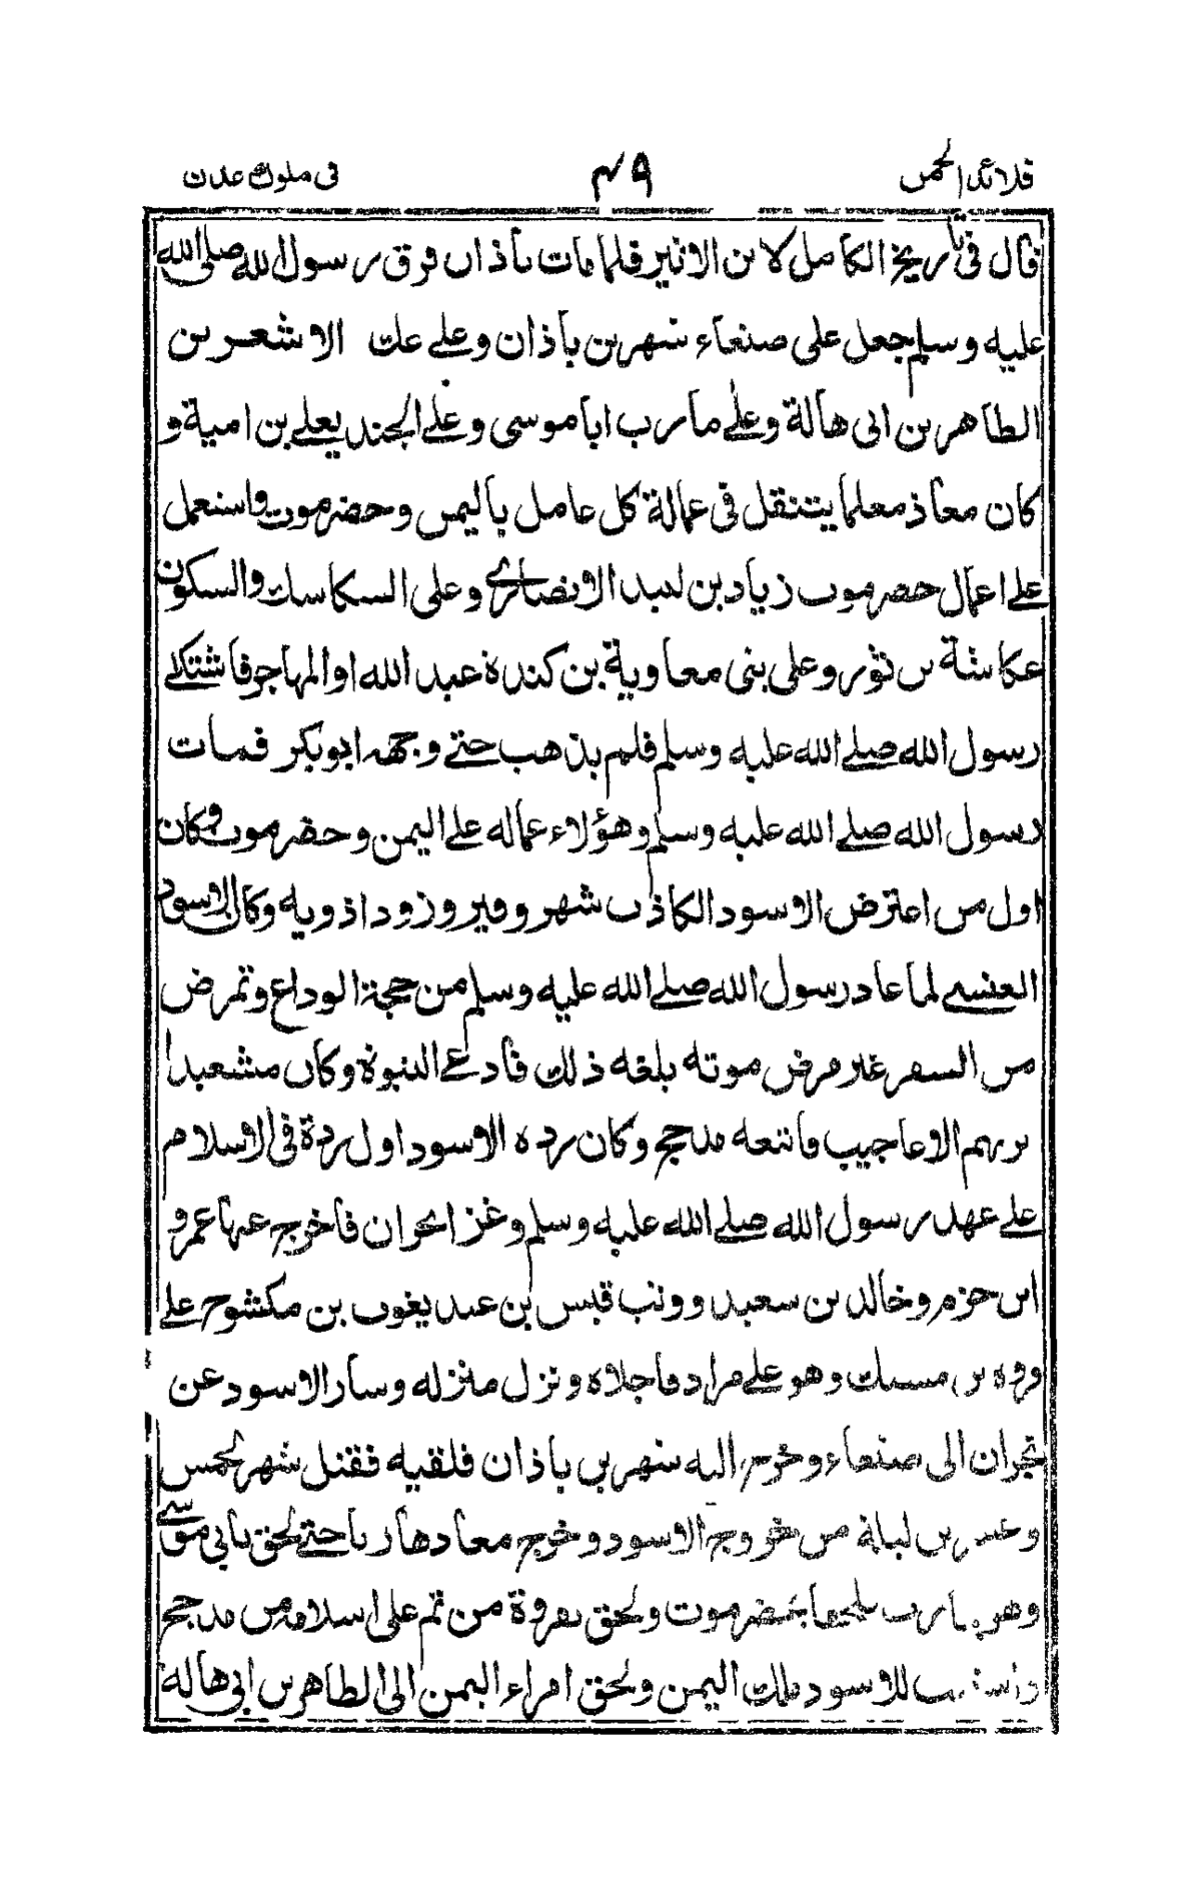 قلائد الجمن ٤٩ فى ملوك عدن
قال فى تاريخ الكامل لابن الاثير فلما مات باذان فرق رسول الله صلى الله
عليه وسلم جعل على صنعاء شهر بن باذان وعلے عك الاشعرين
الطاهر بن ابى هالة وعلے مأرب ابا موسى وعلے الجند يعلے بن امية و
كان معاذ معلما يتنقل فى عمالة كل عامل باليمن وحضرموت واستعمل
علے اعمال حضرموت زياد بن لبيد الانصارے وعلى السكاسك والسكون
عكاشة بن ثور وعلى بنى معاوية بن كندة عبد الله او المهاجر فاشتكے
رسول الله صلے الله عليه وسلم فلم يذهب حتے وجهه ابوبكر فمات
رسول الله صلے الله عليه وسلم وهؤلاء عماله علے اليمن وحضرموت وكان
اول من اعترض الاسود الكاذب شهر وفيروز وداذويه وكان الاسود
العنسے لما عاد رسول الله صلے الله عليه وسلم من حجة الوداع وتمرض
من السفر غير مرض موته بلغه ذلك فادعے النبوة وكان مشعبدا
يريهم الاعاجيب فاتبعه مذحج وكان رده الاسود اول ردة فى الاسلام
علے عهد رسول الله صلے الله عليه وسلم وغزا نجران فاخرج عنها عمرو
ابن حزم وخالد بن سعيد ووثب قيس بن عبد يغوث بن مكشوح علے
فروه بن مسيك وهو علے مراد فاجلاه ونزل منزله وسار الاسود عن
نجران الى صنعاء وخرج اليه شهر بن باذان فلقيه فقتل شهر لخمس
وعشرين ليلة من خروج الاسود وخرج معاذ هاربا حتے لحق بابى موسے
وهو بمارب فلحقا بحضرموت ولحق بفروة من تم على اسلامه من مذحج
واستتب للاسود ملك اليمن ولحق امراء اليمن الى الطاهر بن ابى هاله